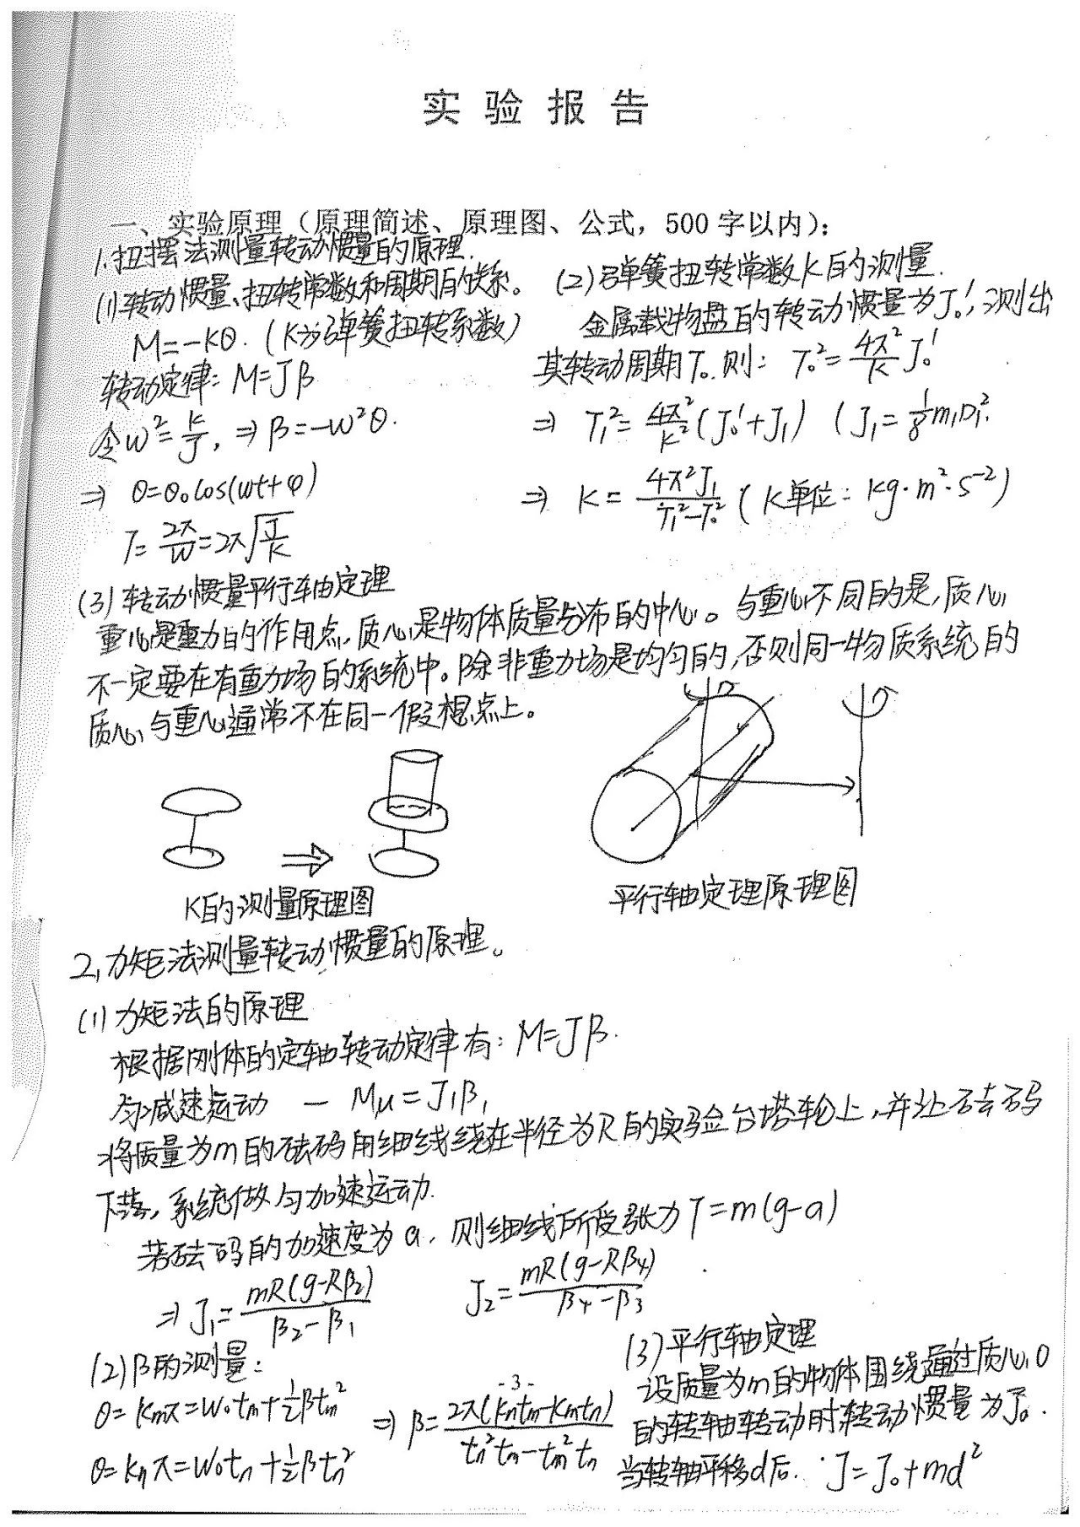 实 验 报 告
一、实验原理（原理简述、原理图、公式，500 字以内）：
1.扭摆法测量转动惯量的原理.
(1)转动惯量、扭转常数和周期的关系。
M=-Kθ. (K为弹簧扭转系数)
转动定律: M=Jβ
令ω²=K/J, ⇒ β=-ω²θ.
⇒ θ=θ₀cos(ωt+φ)
T=2π/ω=2π√(J/K)
(2)弹簧扭转常数K的测量.
金属载物盘的转动惯量为J₀′,测出
其转动周期T₀.则: T₀²=4π²/K J₀′
⇒ T₁²=4π²/K²(J₀′+J₁) (J₁=1/8m₁D₁².
⇒ K=4π²J₁/(T₁²-T₀²) (K单位: kg·m²·s⁻²)
(3)转动惯量平行轴定理
重心是重力的作用点,质心是物体质量分布的中心。与重心不同的是,质心
不一定要在有重力场的系统中。除非重力场是均匀的,否则同一物质系统的
质心与重心通常不在同一假想点上。
K的测量原理图
平行轴定理原理图
2,力矩法测量转动惯量的原理。
(1)力矩法的原理
根据刚体的定轴转动定律有: M=Jβ.
匀减速运动 -Mμ=J₁β₁
将质量为m的砝码用细线绕在半径为R的实验台塔轮上,并让砝码
下落,系统做匀加速运动.
若砝码的加速度为a,则细线所受张力T=m(g-a)
⇒ J₁=mR(g-Rβ₂)/(β₂-β₁) J₂=mR(g-Rβ₄)/(β₄-β₃)
(2)β的测量:
θ=Kmπ=ω₀tm+½βtm²
θ=Knπ=ω₀tn+½βtn²
-3-
⇒ β=2π(Kntm-Kmtn)/(tn²tm-tm²tn)
(3)平行轴定理
设质量为m的物体围绕通过质心O
的转轴转动时转动惯量为J₀.
当转轴平移d后. J=J₀+md²